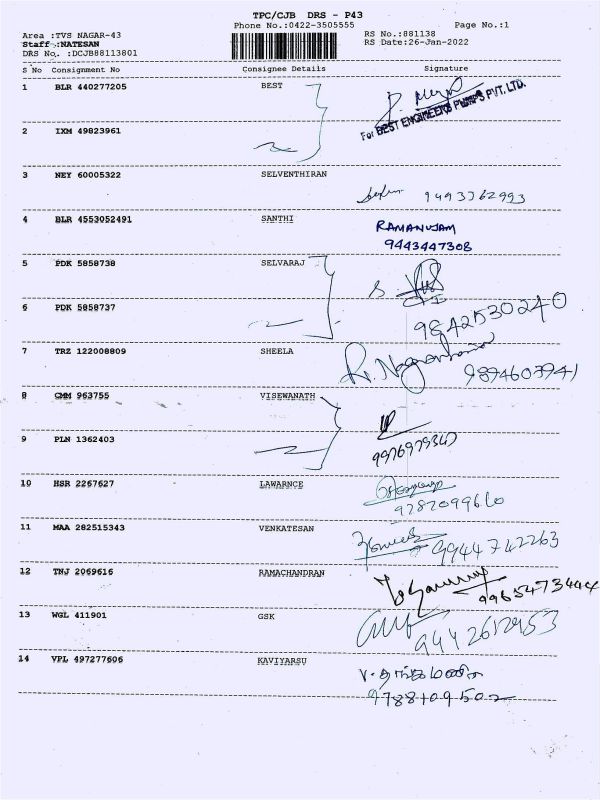 TPC/CJB DRS - P43
Phone No.:0422-3505555 Page No.:1
Area :TVS NAGAR-43 RS No.:881138
Staff :NATESAN RS Date:26-Jan-2022
DRS No. :DCJB88113801
S No Consignment No Consignee Details Signature
1 BLR 440277205 BEST
For BEST ENGINEERS PUMPS PVT. LTD.
2 IXM 49823961
3 NEY 60005322 SELVENTHIRAN
9493762993
4 BLR 4553052491 SANTHI RAMANUJAM
9443447308
5 PDK 5858738 SELVARAJ
6 PDK 5858737
9842530240
7 TRZ 122008809 SHEELA
9894603941
8 GMM 963755 VISEWANATH
9 PLN 1362403
9976979347
10 HSR 2267627 LAWARNCE
9787099660
11 MAA 282515343 VENKATESAN
9944742263
12 TNJ 2069616 RAMACHANDRAN
9965473444
13 WGL 411901 GSK
9442612953
14 VPL 497277606 KAVIYARSU
9788109502